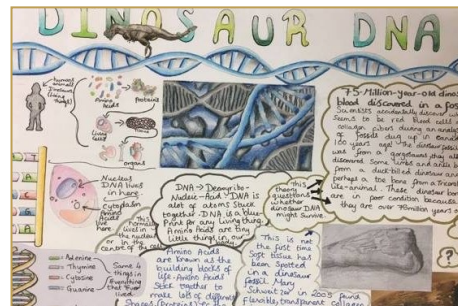 DINOSAUR DNA
humans
animals
Dinosaurs
(living
things)
Amino
Acids
Proteins
Living
Cells
Tissue
organs
Nucleus
DNA lives
in here.
Cytoplasm
Amino
Acids
live
here
This
normally
lives in
the nucleus
or in the
centre of the cell
Adenine
Thymine
Cytosine
Guanine
Same 4
things in
Everything
that ever
lived
DNA → Deoxyribo-
Nucleic-Acid → DNA is
alot of atoms stuck
together. DNA is a blue-
Print for any living thing.
Amino Acids are tiny
little things in our
body.
Amino Acids
are known as the
building blocks
of life. Amino Acids
Stick together to
make lots of different
This
theory
questions
whether
dinosaur DNA
might survive.
This is not
the first time
Soft tissue has
been spotted
in a dinosaur
fossil. Mary
Schweitzer in 2005 found
flexible, transparent collagen
75-Million-year-old dino
blood discovered in a foss
Scientists accidentally discover wh
Seems to be red blood cells a
collagen fibers during an analys
of fossils dug up in
100 years ago! The dinosaur
was from a
discovered some limbs and ankle b
from a duck-billed dinosaur an
perhaps a toe bone from a Tricerat
like-animal. These dinosaur bon
are in poor condition because
they are over 75million years o
?